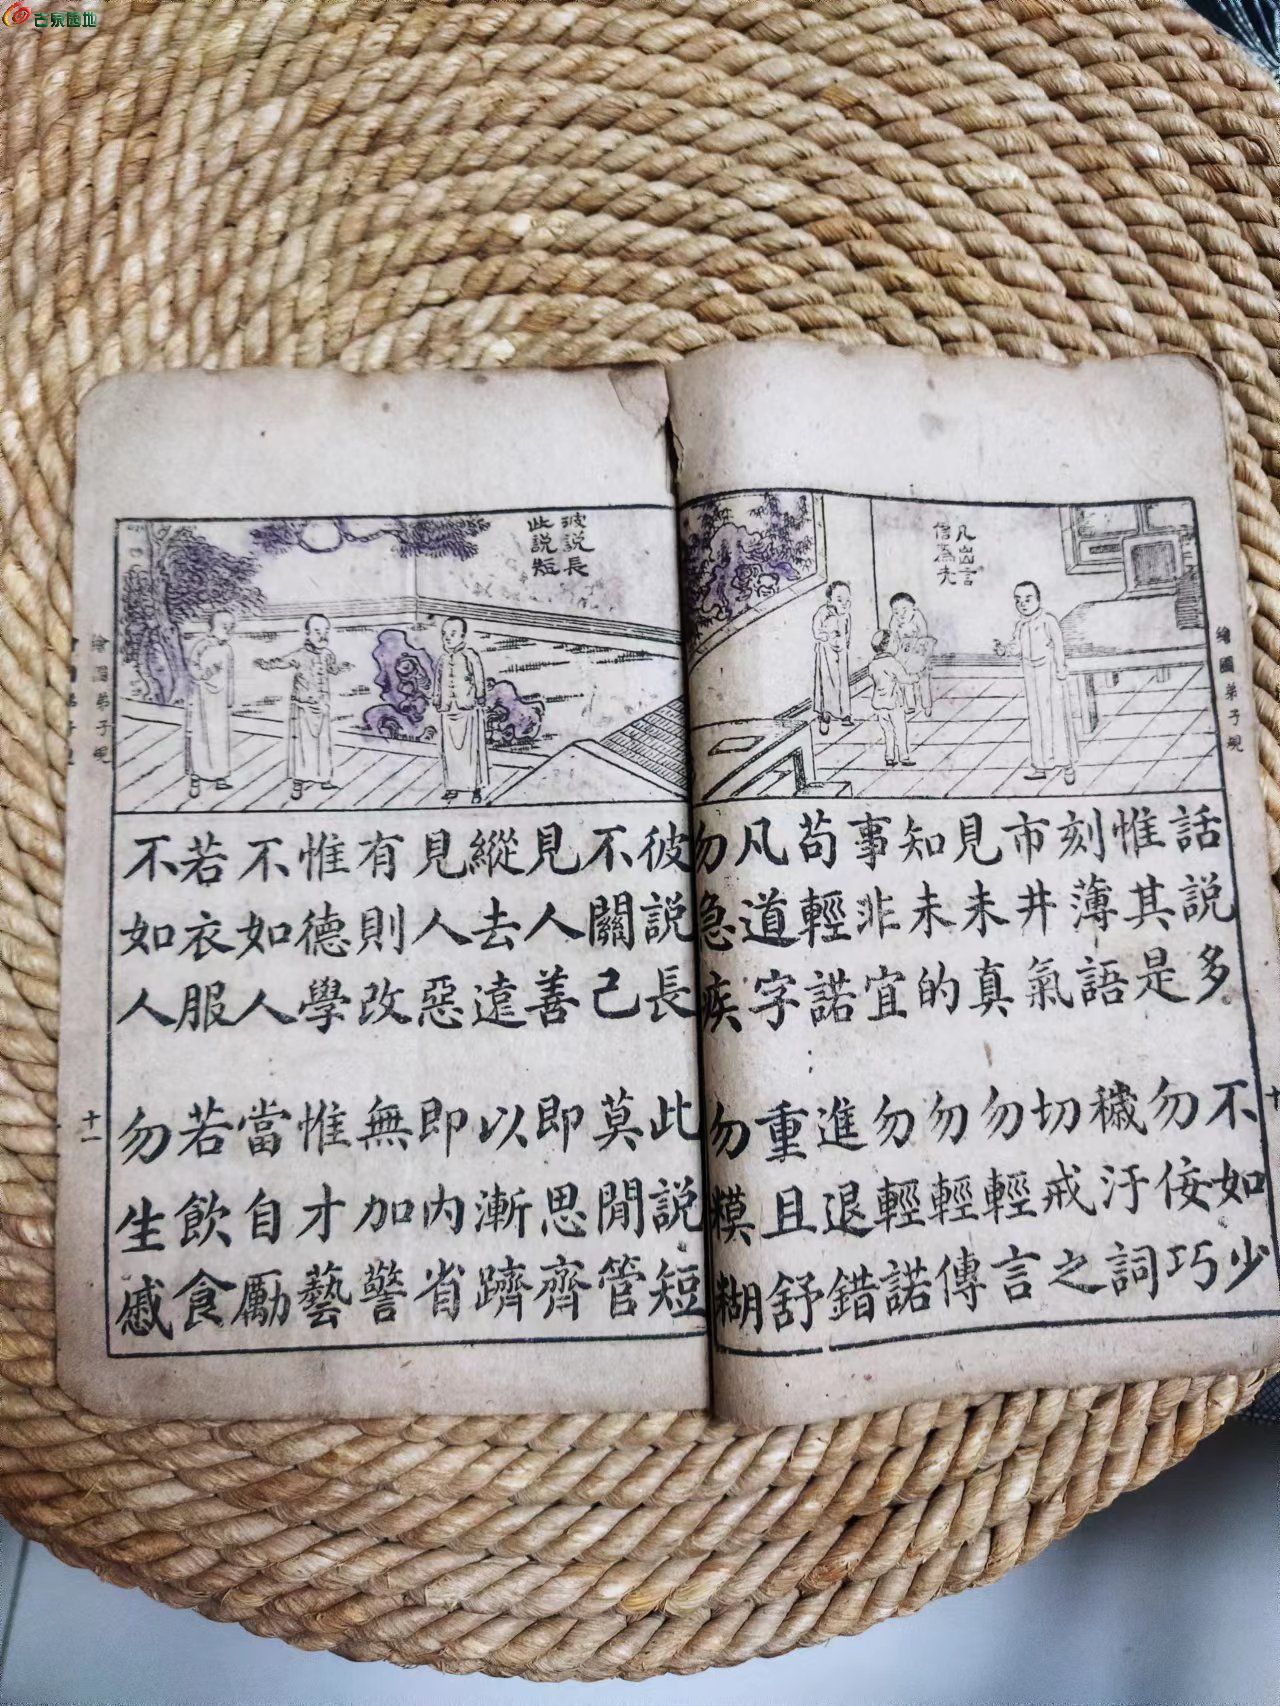 古泉园地
繪圖弟子規
凡出言
信為先
話說多 不如少
惟其是 勿佞巧
刻薄語 穢汙詞
市井氣 切戒之
見未真 勿輕言
知未的 勿輕傳
事非宜 勿輕諾
苟輕諾 進退錯
凡道字 重且舒
勿急疾 勿模糊
彼說長
此說短
彼說長 此說短
不關己 莫閒管
見人善 即思齊
縱去遠 以漸躋
見人惡 即內省
有則改 無加警
惟德學 惟才藝
不如人 當自勵
若衣服 若飲食
不如人 勿生慼
繪圖弟子規
十一